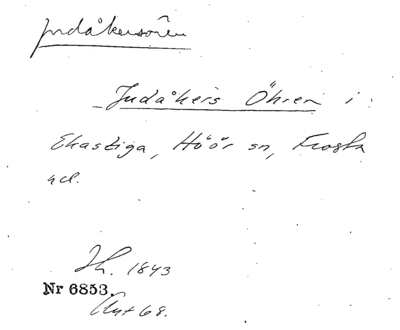 Judåkersören
Judåkers Öhren i
Ekastiga, Höör sn, Frosta
hd.
Jh. 1843
Nr 6853.
Akt 68.